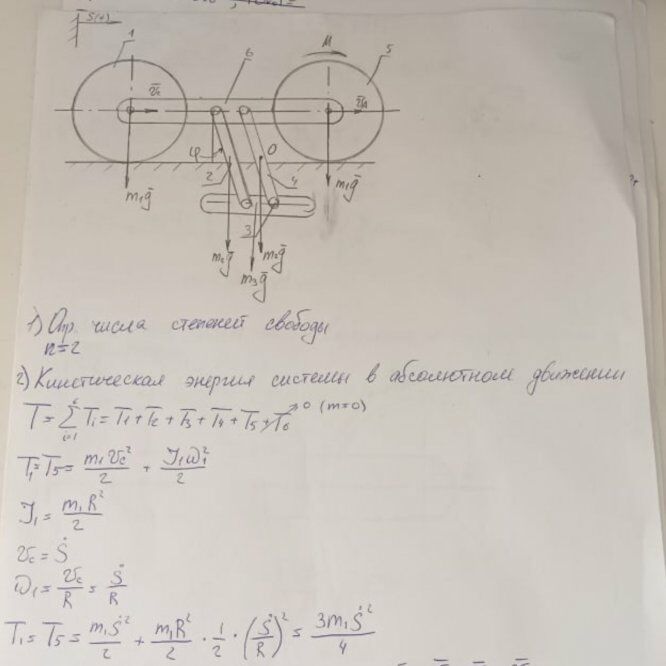 S(t)
1
6
M
5
v̄c
v̄A
φ
O
2
4
m₁ḡ
m₁ḡ
3
m₂ḡ
m₂ḡ
m₃ḡ
1) Опр. числа степеней свободы
n=2
2) Кинетическая энергия системы в абсолютном движении
T = ∑ᵢ₌₁⁶ Tᵢ = T₁ + T₂ + T₃ + T₄ + T₅ + T₆ →0 (m=0)
T₁ = T₅ = m₁vc²/2 + J₁ω₁²/2
J₁ = m₁R²/2
vc = Ṡ
ω₁ = vc/R = Ṡ/R
T₁ = T₅ = m₁Ṡ²/2 + m₁R²/2 · 1/2 · (Ṡ/R)² = 3m₁Ṡ²/4